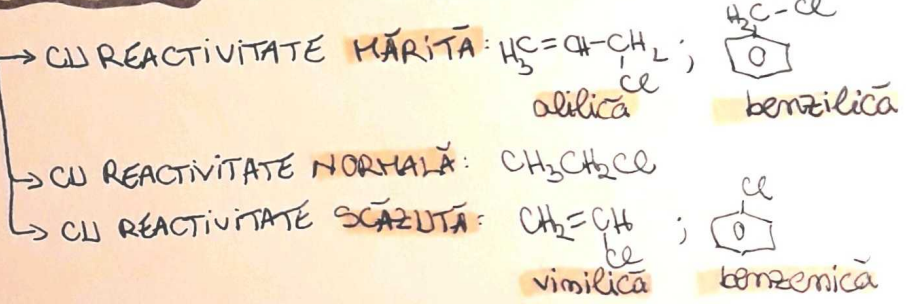 → CU REACTIVITATE MĂRITĂ: H₃C=CH-CH₂ ; H₂C-Cl
Cl
alilică benzilică
→ CU REACTIVITATE NORMALĂ: CH₃CH₂Cl
→ CU REACTIVITATE SCĂZUTĂ: CH₂=CH ; Cl
Cl
vinilică benzenică